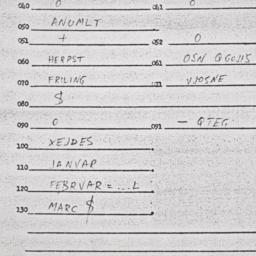 040 0 041 0
050 ANUMLT
051 + 052 0
060 HERPST 061 OSN
070 FRILING
080 $
090 0 091 - QTEG
100 XEJDES
110 JANVAR
120 FEBRVAR = ... L
130 MARC $